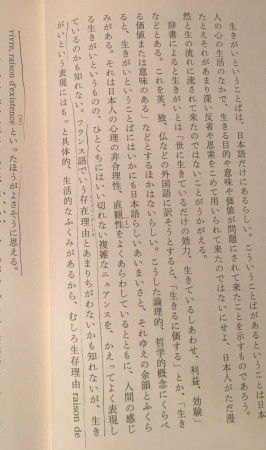 生きがいということばは、日本語だけにあるらしい。こういうことばがあるということは日本
人の心の生活のなかで、生きる目的や意味や価値が問題にされて来たことを示すものであろう。
たとえそれがあまり深い反省や思索をこめて用いられて来たのではないにせよ、日本人がただ漫
然と生の流れに流されて来たのではないことがうかがえる。
辞書によると生きがいとは「世に生きているだけの効力、生きているしあわせ、利益、効験」
などとある。これを英、独、仏などの外国語に訳そうとすると、「生きるに価する」とか、「生き
る価値または意味のある」などとするほかはないらしい。こうした論理的、哲学的概念にくらべ
ると、生きがいということばにはいかにも日本語らしいあいまいさと、それゆえの余韻とふくら
みがある。それは日本人の心理の非合理性、直観性をよくあらわしているとともに、人間の感じ
る生きがいというものの、ひとくちにはいい切れない複雑なニュアンスを、かえってよく表現し
ているのかも知れない。フランス語でいう存在理由とあまりちがわないかも知れないが、生き
がいという表現にはもっと具体的、生活的なふくみがあるから、むしろ生存理由 raison de
vivre, raison d'existence といったほうがよさそうに思える。